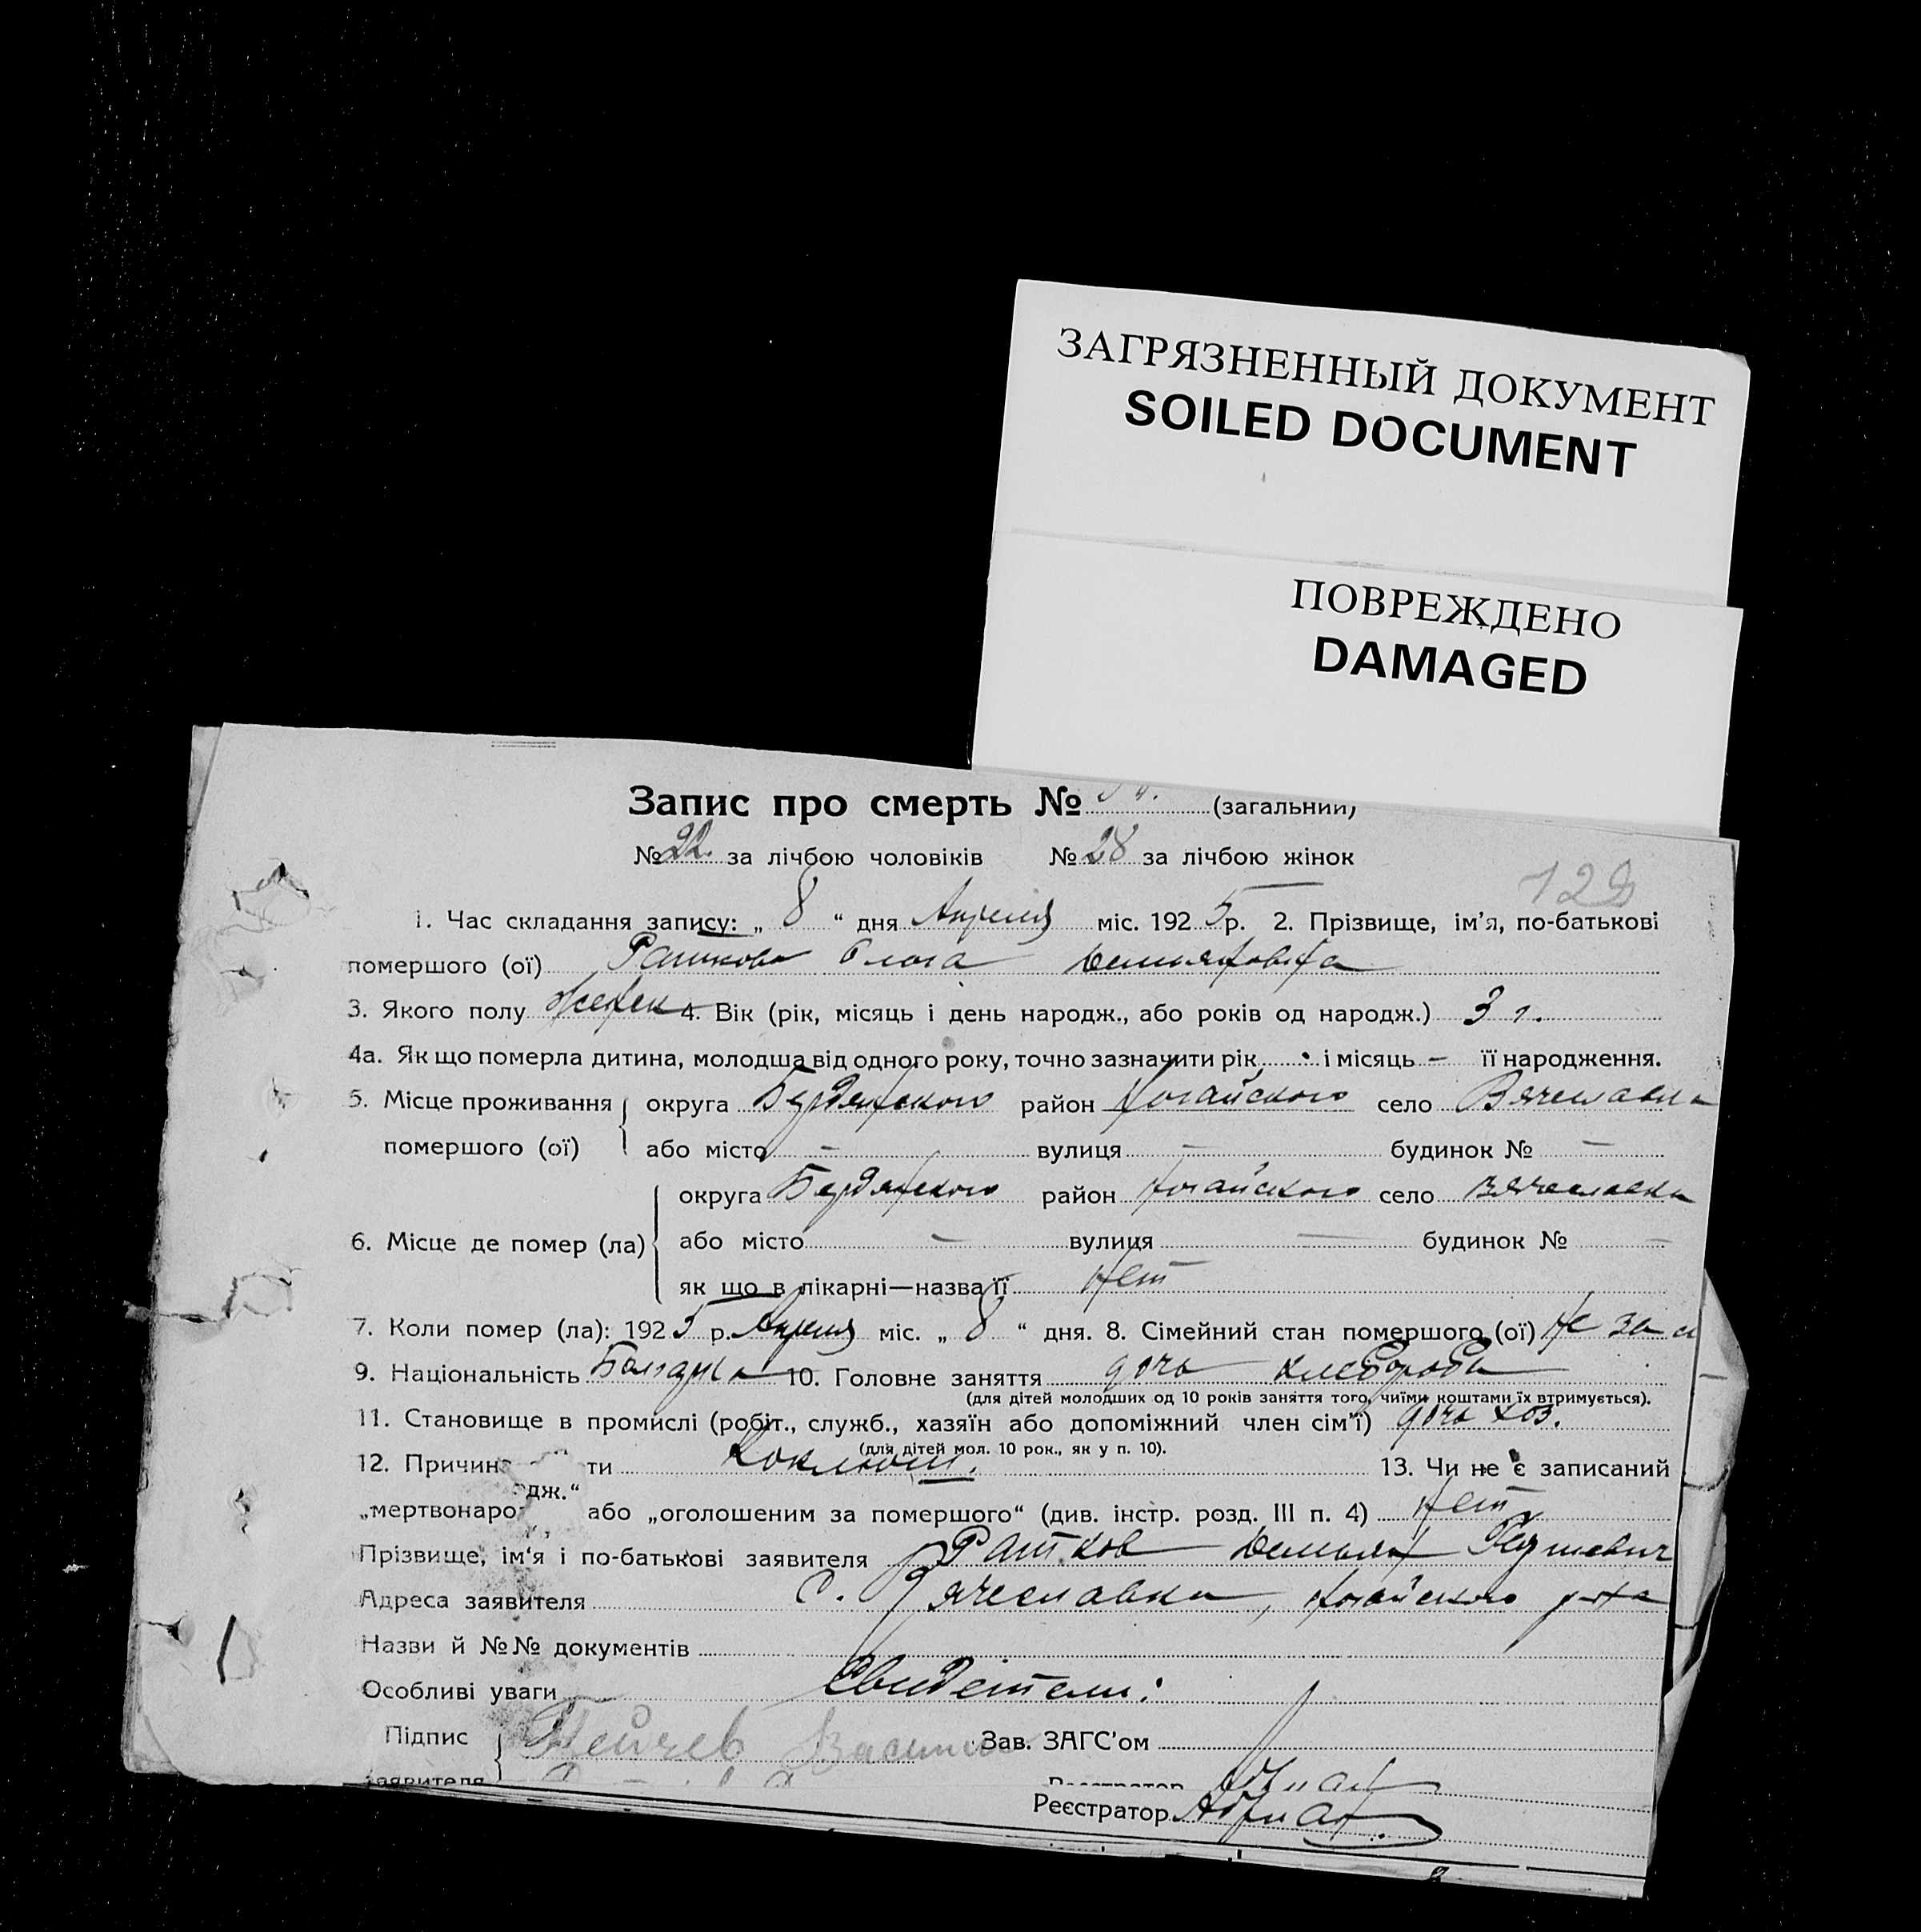 ЗАГРЯЗНЕННЫЙ ДОКУМЕНТ
SOILED DOCUMENT
ПОВРЕЖДЕНО
DAMAGED
Запис про смерть № (загальний)
№ 22. за лічбою чоловіків № 28 за лічбою жінок
129
1. Час складання запису: „ 8 “ дня Апреля міс. 1925 р. 2. Прізвище, ім’я, по-батькові
помершого (ої) Рашкова Ольга Демьяновна
3. Якого полу женск 4. Вік (рік, місяць і день народж., або років од народж.) 3 г.
4а. Як що померла дитина, молодша від одного року, точно зазначити рік і місяць – її народження.
5. Місце проживання округа Бердянского район Ногайского село Вячеславка
помершого (ої) або місто – вулиця – будинок № –
округа Бердянского район Ногайского село Вячеславка
6. Місце де помер (ла) або місто – вулиця – будинок № –
як що в лікарні—назва її Нет
7. Коли помер (ла): 1925 р. Апреля міс. „ 8 “ дня. 8. Сімейний стан помершого (ої) Не
9. Національність Болгарка 10. Головне заняття дочь хлебороба
(для дітей молодших од 10 років заняття того, чиїми коштами їх втримується).
11. Становище в промислі (робіт., служб., хазяїн або допоміжний член сім’ї) дочь хоз.
(для дітей мол. 10 рок., як у п. 10).
12. Причин ти Коклюш. 13. Чи не є записаний
дж.“
„мертвонаро або „оголошеним за помершого“ (див. інстр. розд. III п. 4) Нет
Прізвище, ім‘я і по-батькові заявителя Рашков Демьян
Адреса заявителя с. Вячеславка, Ногайского р-на
Назви й №№ документів
Особливі уваги Свидетели:
Підпис Пейчев Василий Зав. ЗАГС’ом
заявителя Реєстратор
Реєстратор